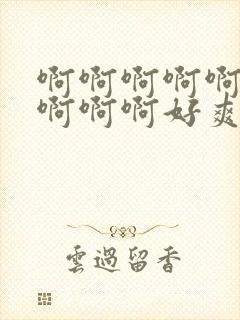 啊啊啊啊啊
啊啊啊好爽
雲過留香